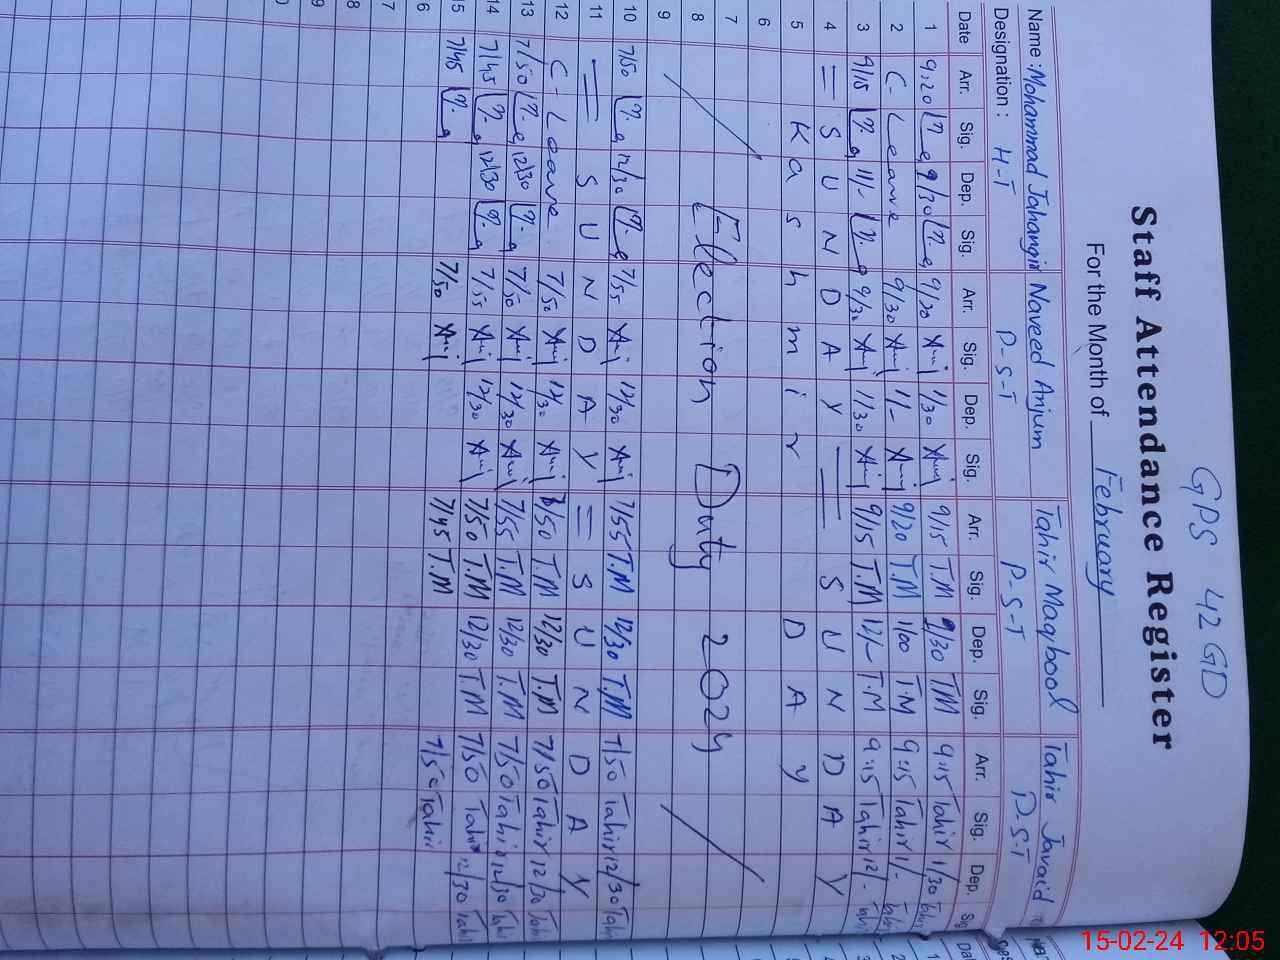 GPS 42 GD
Staff Attendance Register
For the Month of February
Name : Mohammad Jahangir Naveed Anjum Tahir Maqbool Tahir Javaid
Designation : H-T P-S-T P-S-T P.S.T
Date Arr. Sig. Dep. Sig. Arr. Sig. Dep. Sig. Arr. Sig. Dep. Sig. Arr. Sig. Dep. Sig
1 9:20 9/30 9/20 Anj 1/30 Anj 9/15 T.M 1/30 T.M 9:15 Tahir 1/30 Tahir
2 C- Leave 9/30 Anj 1/- Anj 9/20 T.M 1/00 T.M 9:15 Tahir 1/-
3 9/15 11/- 9/30 Anj 1/30 Anj 9/15 T.M 12/- T.M 9:15 Tahir 12/-
4 = SUNDAY = SUNDAY
5 Kashmir DAY
6
7
8 Election Duty 2024
9
10 7/50 12/30 7/55 Anj 12/30 Anj 7/55 T.M 12/30 T.M 7/50 Tahir 12/30 Tahi
11 = SUNDAY = SUNDAY
12 C- Leave 7/50 Anj 12/30 Anj 7/50 T.M 12/30 T.M 7/50 Tahir 12/30 Tahi
13 7/50 12/30 7/50 Anj 12/30 Anj 7/55 T.M 12/30 T.M 7/50 Tahir 12/30 Tahi
14 7/45 12/30 7/55 Anj 12/30 Anj 7/50 T.M 12/30 T.M 7/50 Tahir 12/30 Tahi
15 7/45 7/50 Anj 7/45 T.M 7/50 Tahir
6
7
8
9
15-02-24 12:05